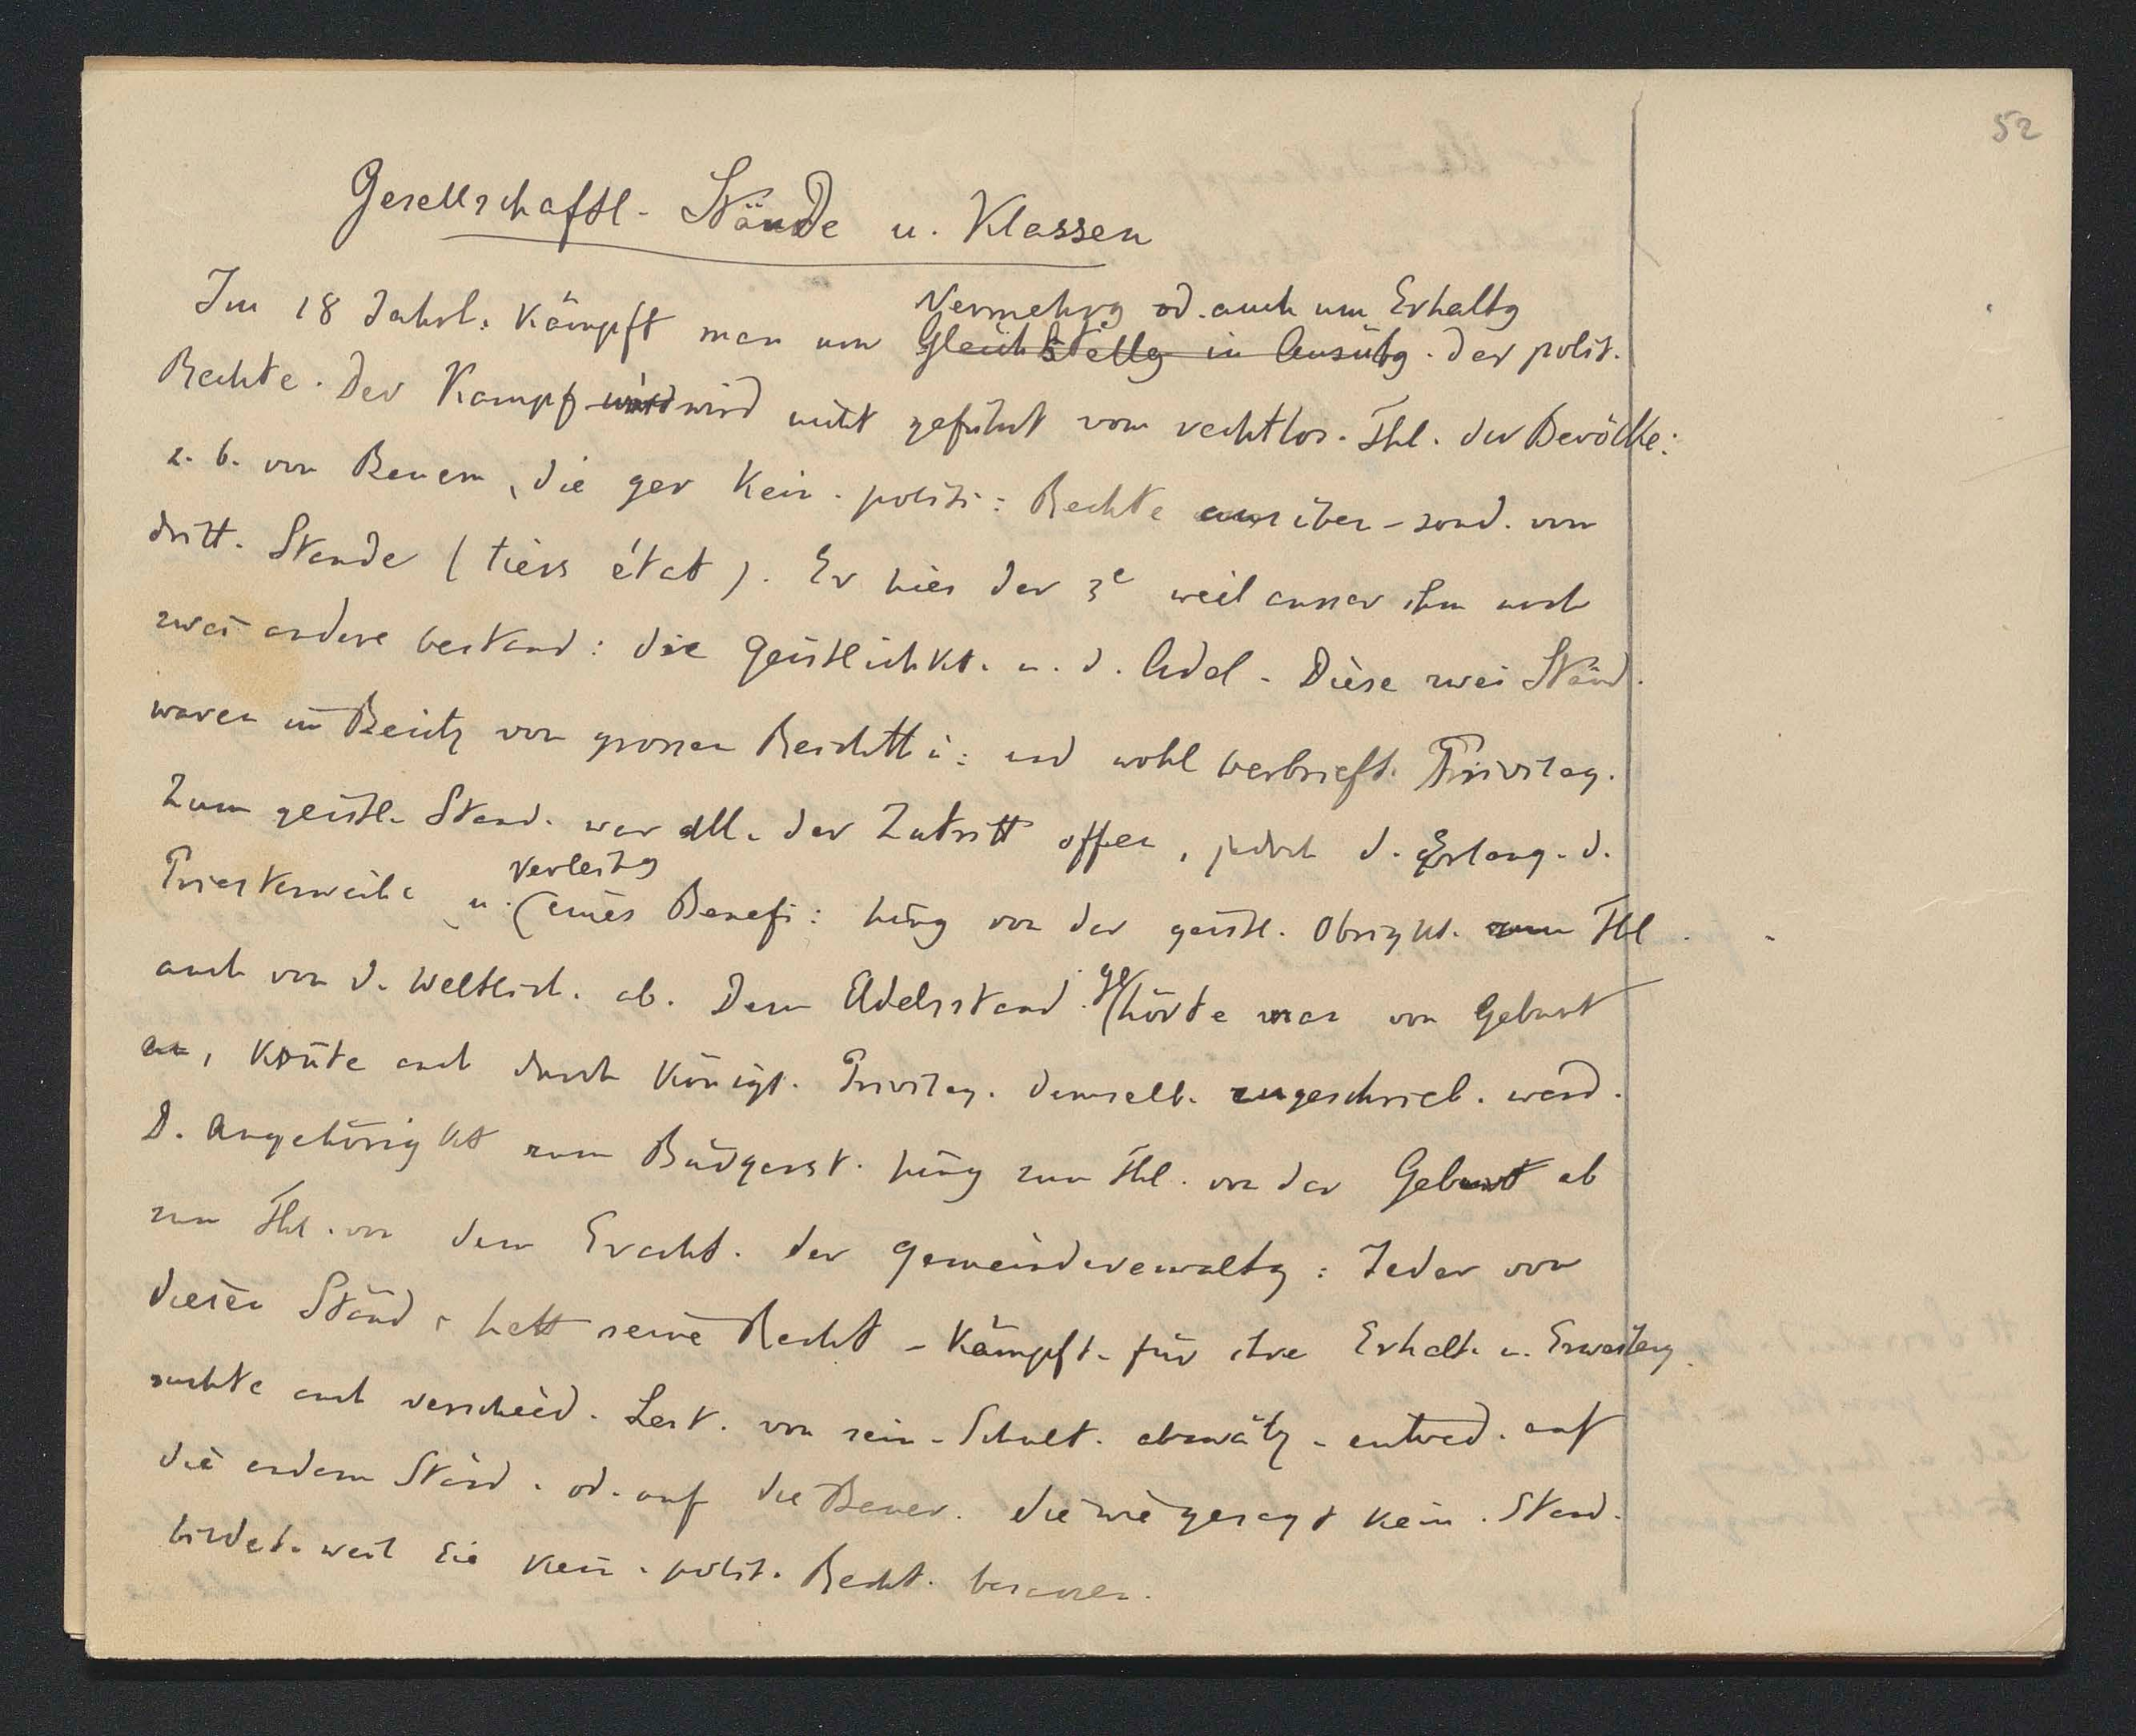 52
Gesellschaftl. Stände u. Klassen
Vermehrg od. auch um Erhaltg
Im 18 Jahrh. kämpft man um Gleichstellg in Ausübg. der polit.
Rechte. Der Kampf wird wird nicht geführt vom rechtlos. Thl. der Bevölke:
z. b. von Bauern, die gar kein. politi: Rechte ausüben - sond. vom
dritt. Stande (tiers état). Er hies der 3e weil ausser ihm noch
zwei andere bestand: die Geistlichkt. u. d. Adel. Diese zwei Ständ.
waren im Besitz von grossen Reichtü: und wohl verbrieft. Privileg.
Zum geistl. Stand. war all. der Zutritt offen, jedoch d. Erlang. d.
Verleihg
Priesterweihe u. eines Benefi: hing von der geistl. Obrigkt. zum Thl.
auch von d. weltlich. ab. Dem Adelsstand. gehörte man von Geburt
an, konnte auch durch königl. Privileg. demselb. zugeschrieb. werd.
D. Angehörigkt zum Bürgerst. hing zum Thl. von der Geburt ab
zum Thl. von dem Eracht. der Gemeindeverwaltg: Jeder von
diesen Ständ. hatt seine Recht - kämpft. für ihre Erhalt. u. Erweiterg.
suchte auch verschied. Last. von sein. Schult. abzuwälz. entwed. auf
die andern Ständ. od. auf die Bauer. die wie gesagt kein. Stand.
bildet. weil sie kein. polit. Recht. besassen.